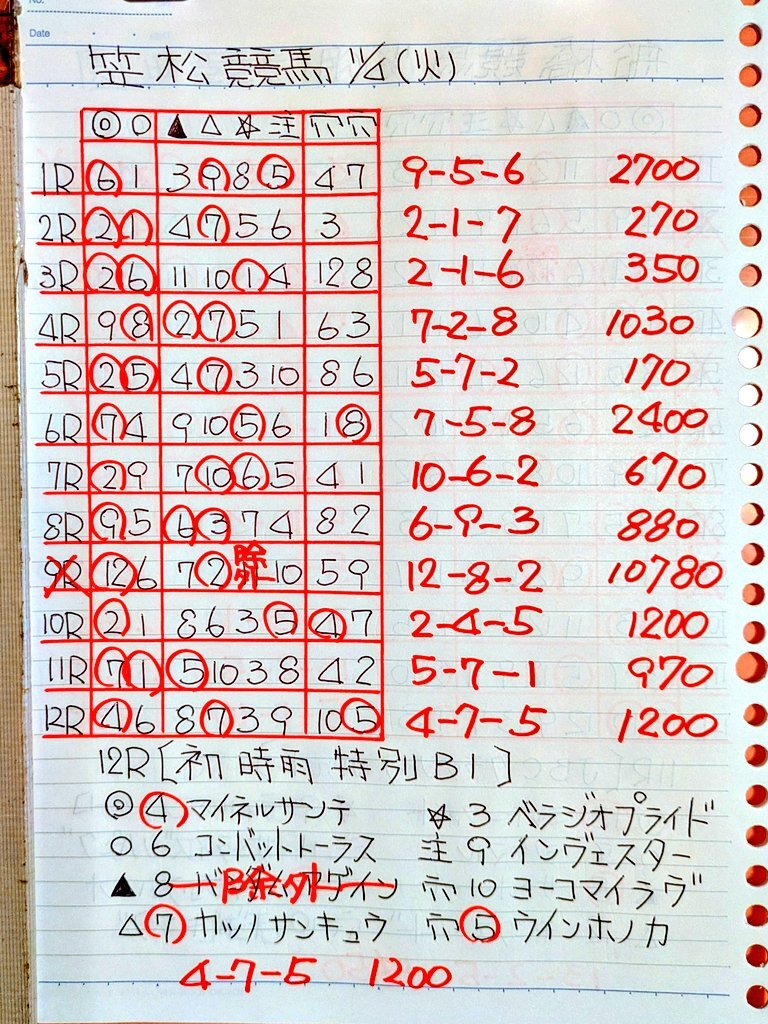 No.
Date
笠松競馬 11/4(火)
◎○▲△☆注穴穴
1R 6 1 3 9 8 5 4 7 9-5-6 2700
2R 2 1 4 7 5 6 3 2-1-7 270
3R 2 6 11 10 1 4 12 8 2-1-6 350
4R 9 8 2 7 5 1 6 3 7-2-8 1030
5R 2 5 4 7 3 10 8 6 5-7-2 170
6R 7 4 9 10 5 6 1 8 7-5-8 2400
7R 2 9 7 10 6 5 4 1 10-6-2 670
8R 9 5 6 3 7 4 8 2 6-9-3 880
9R 12 6 7 2 除外 10 5 9 12-8-2 10780
10R 2 1 8 6 3 5 4 7 2-4-5 1200
11R 7 1 5 10 3 8 4 2 5-7-1 970
12R 4 6 8 7 3 9 10 5 4-7-5 1200
12R[初時雨特別B1]
◎ 4 マイネルサンテ ☆ 3 ベラジオプライド
○ 6 コンバットトーラス 注 9 インヴェスター
▲ 8 除外 穴 10 ヨーコマイラヴ
△ 7 カツノサンキュウ 穴 5 ウインホノカ
4-7-5 1200